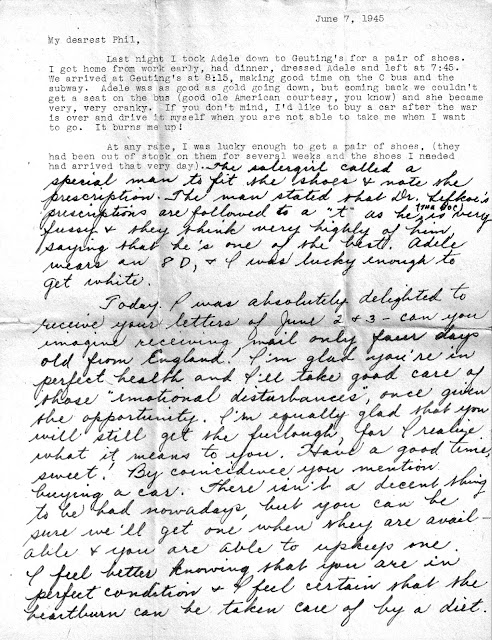 June 7, 1945
My dearest Phil,
Last night I tock Adele down to Geuting's for a pair of shoes.
I got home from work early, had dinner, dressed Adele and left at 7:45.
We arrived at Geuting's at 8:15, making good time on the C bus and the
subway. Adele was as good as gold going down, but coming back we couldn't
get a seat on the bus (good ole American courtesy, you know) and she became
very, very cranky. If you don't mind, I'd like to buy a car after the war
is over and drive it myself when you are not able to take me when I want
to go. It burns me up!
At any rate, I was lucky enough to get a pair of shoes. (they
had been out of stock on them for several weeks and the shoes I needed
had arrived that very day). The salesgirl called a
special man to fit the shoes & note the
prescription. The man stated that Dr. Lefkoe's
prescriptions are followed to a "t" as he (THE DOC) is very
fussy & they think very highly of him,
saying that he's one of the best. Adele
wears an 8 D, & I was lucky enough to
get white.
Today I was absolutely delighted to
receive your letters of June 2 & 3 - can you
imagine receiving mail only four days
old from England! I'm glad you're in
perfect health and I'll take good care of
those "emotional disturbances", once given
the opportunity. I'm equally glad that you
will still get the furlough, for I realize
what it means to you. Have a good time,
sweet! By coincidence you mention
buying a car. There isn't a decent thing
to be had nowadays, but you can be
sure we'll get one when they are avail-
able & you are able to upkeep one.
I feel better knowing that you are in
perfect condition & I feel certain that the
heartburn can be taken care of by a diet.